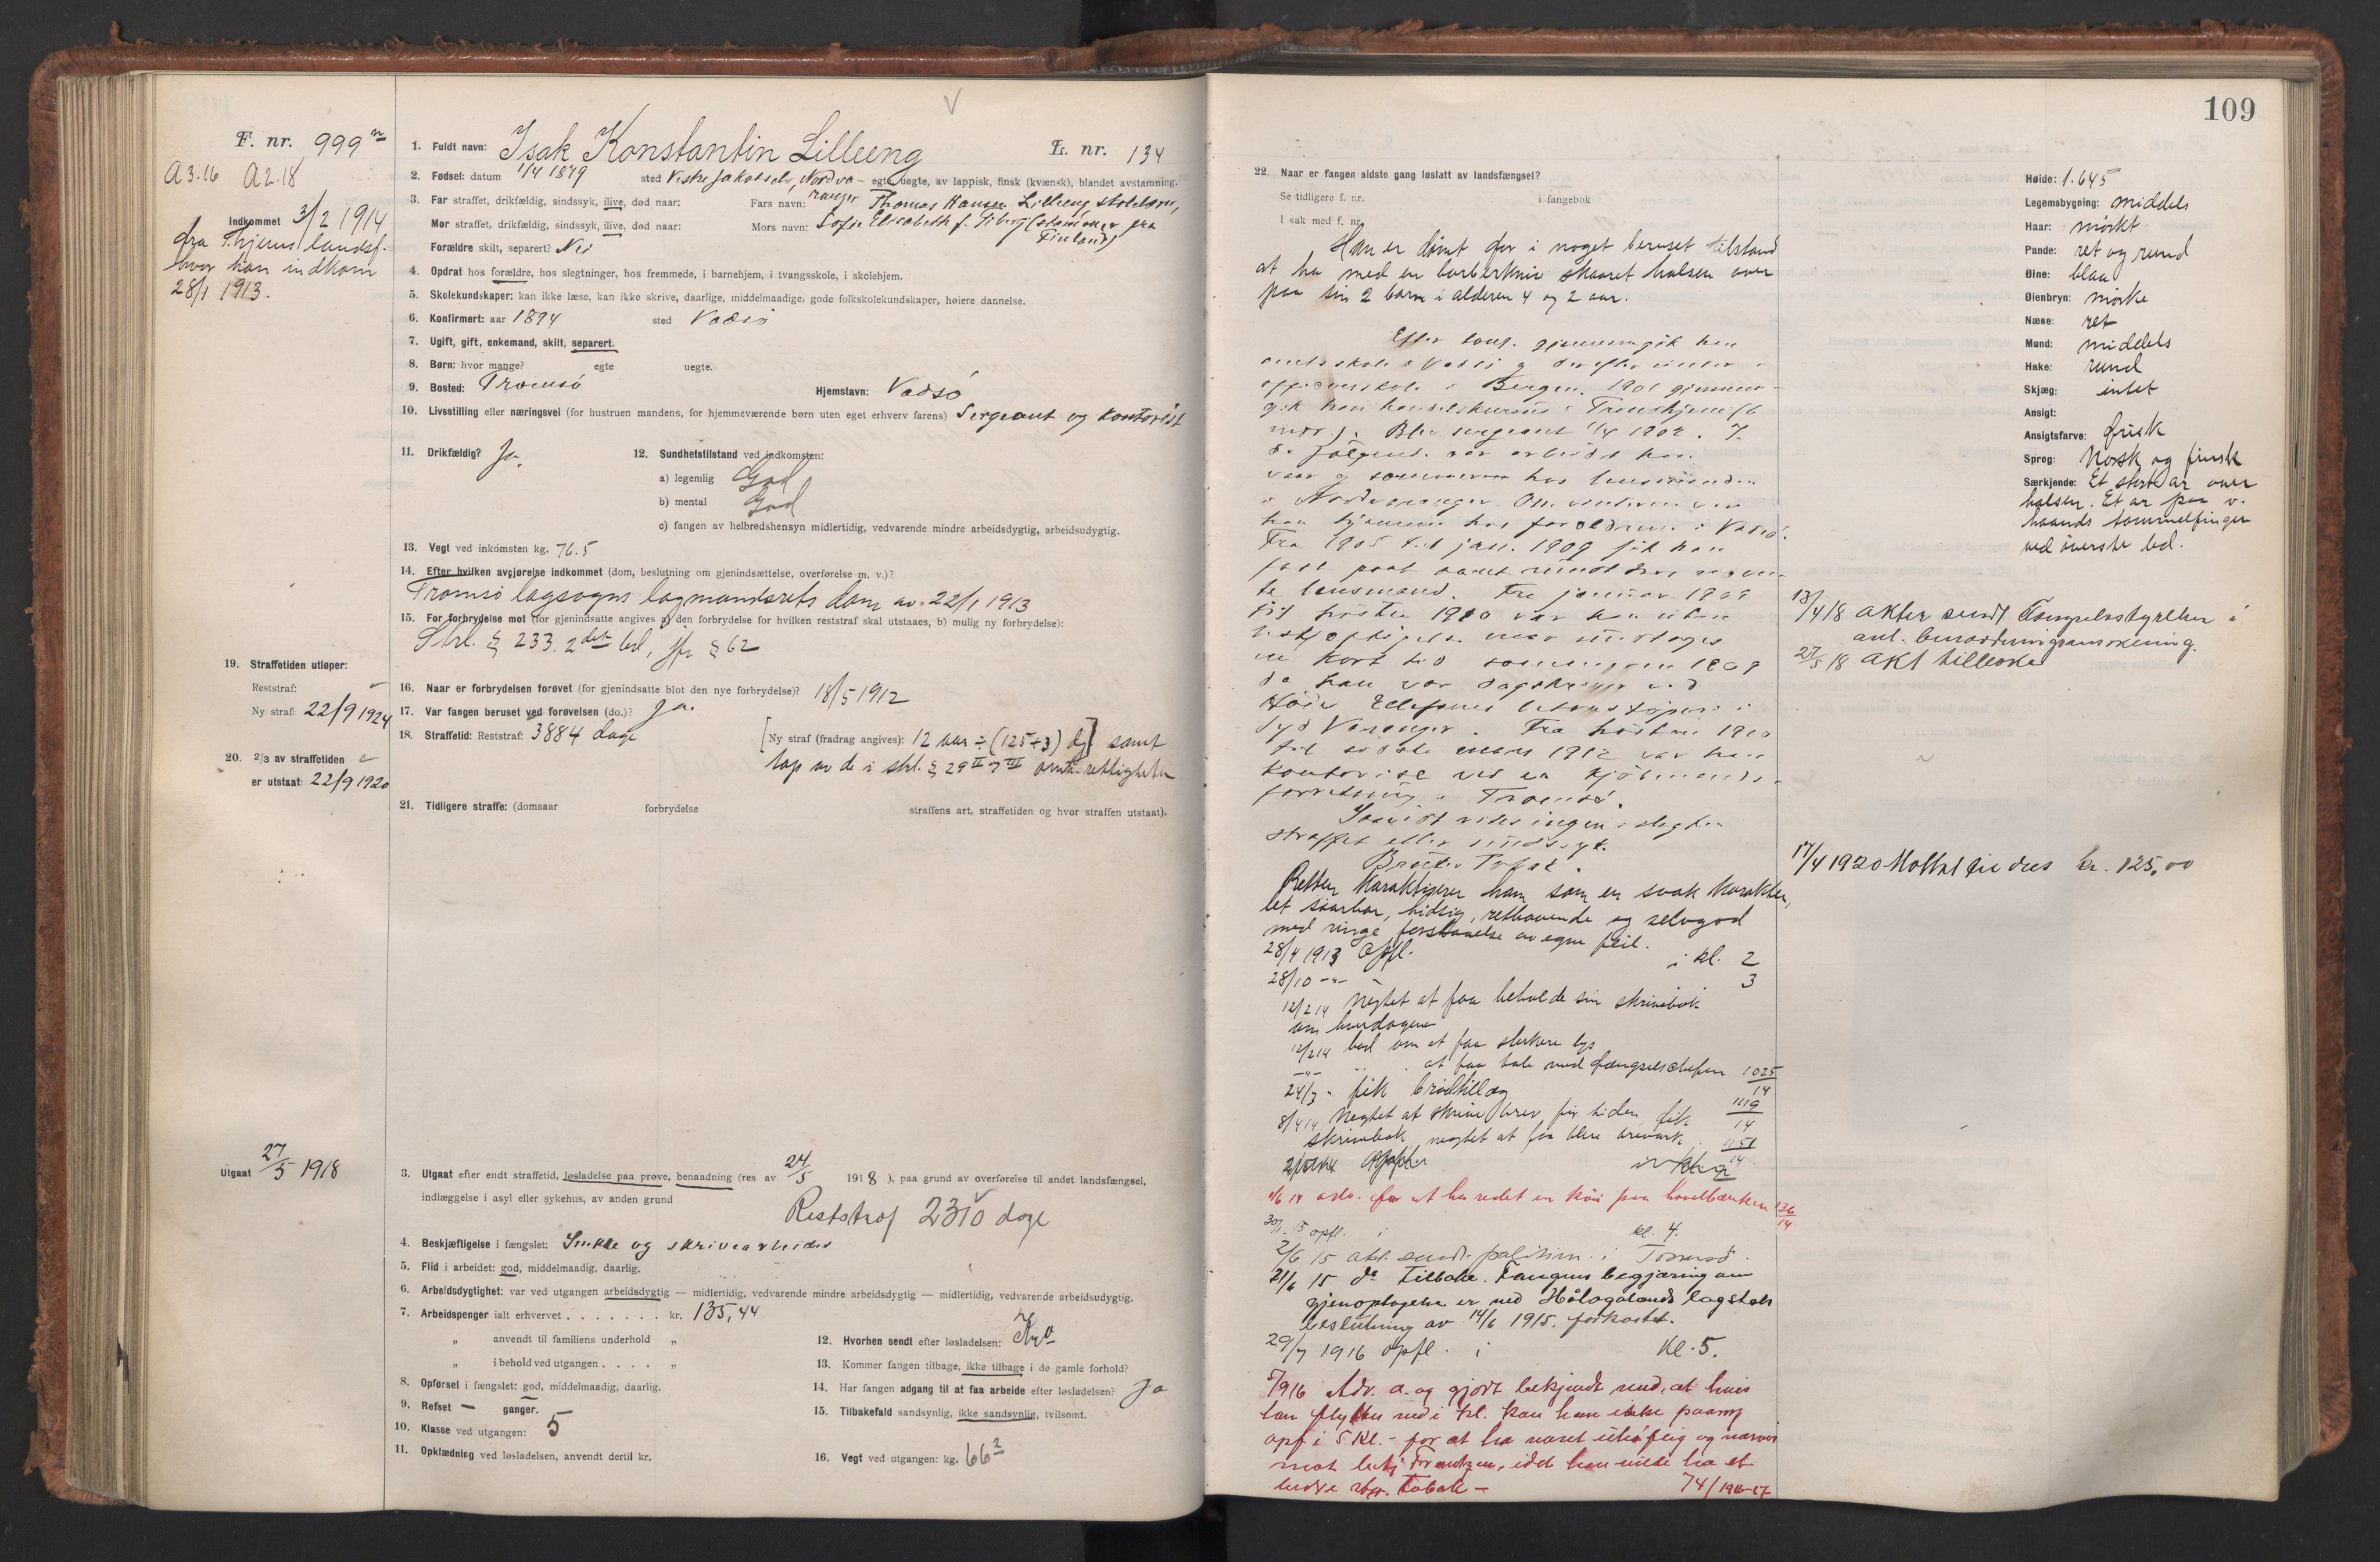 F. nr. 999
A 3.16 A 2.18
Indkommet 3/2 1914
fra Thjems landsf.
hvor han indkom
28/1 1913.
19. Straffetiden utløper:
Reststraf:
Ny straf: 22/9 1924
20. 2/3 av straffetiden
er utstaat: 22/9 1920
Utgaat 27/5 1918
1. Fuldt navn: Isak Konstantin Lilleeng L. nr. 134
2. Fødsel: datum 1/4 1879 sted Vestre Jakobselv, Nordva- egte, uegte, av lappisk, finsk (kvænsk), blandet avstamning.
ranger
3. Far straffet, drikfældig, sindssyk, ilive, død naar: Fars navn: Thomas Hansen Lilleeng
Mor straffet, drikfældig, sindssyk, ilive, død naar: Mors navn: Sofie Elisabeth f. (stammer fra
Finland)
Forældre skilt, separert? Nei
4. Opdrat hos forældre, hos slegtninger, hos fremmede, i barnehjem, i tvangsskole, i skolehjem.
5. Skolekundskaper: kan ikke læse, kan ikke skrive, daarlige, middelmaadige, gode folkskolekundskaper, høiere dannelse.
6. Konfirmert: aar 1894 sted Vadsö
7. Ugift, gift, enkemand, skilt, separert.
8. Børn: hvor mange? egte uegte.
9. Bosted: Tromsö Hjemstavn: Vadsö
10. Livsstilling eller næringsvei (for hustruen mandens, for hjemmeværende børn uten eget erhverv farens) Sergeant og kontorist
11. Drikfældig? Ja.
12. Sundhetstilstand ved indkomsten:
a) legemlig God
b) mental God
c) fangen av helbredshensyn midlertidig, vedvarende mindre arbeidsdygtig, arbeidsudygtig.
13. Vegt ved inkomsten kg. 76.5
14. Efter hvilken avgjørelse indkommet (dom, beslutning om gjenindsættelse, overførelse m. v.)?
Tromsö lagsogns lagmandsrets dom av 22/1 1913
15. For forbrydelse mot (for gjenindsatte angives a) den forbrydelse for hvilken reststraf skal utstaaes, b) mulig ny forbrydelse):
Strl. § 233. 2det led, jfr § 62
16. Naar er forbrydelsen forøvet (for gjenindsatte blot den nye forbrydelse)? 18/5 1912
17. Var fangen beruset ved forøvelsen (do.)? Ja.
18. Straffetid: Reststraf: 3884 dage [Ny straf (fradrag angives): 12 aar ÷ (125+3) dg] samt
tap av de i strl. § 29 II og III omh. rettigheter
21. Tidligere straffe: (domsaar forbrydelse straffens art, straffetiden og hvor straffen utstaat).
3. Utgaat efter endt straffetid, løsladelse paa prøve, benaadning (res av 24/5 1918), paa grund av overførelse til andet landsfængsel,
indlæggelse i asyl eller sykehus, av anden grund
Reststraf 2310 dage
4. Beskjæftigelse i fængslet: Snekke og skrivearbeide
5. Flid i arbeidet: god, middelmaadig, daarlig.
6. Arbeidsdyglighet: var ved utgangen arbeidsdygtig — midlertidig, vedvarende mindre arbeidsdygtig — midlertidig, vedvarende arbeidsudygtig.
7. Arbeidspenger ialt erhvervet . . . . . . . kr. 135,44
" anvendt til familiens underhold "
" i behold ved utgangen . . . . "
8. Opførsel i fængslet: god, middelmaadig, daarlig.
9. Refset — ganger.
10. Klasse ved utgangen: 5
11. Opklædning ved løsladelsen, anvendt dertil kr.
12. Hvorhen sendt efter løsladelsen:
13. Kommer fangen tilbage, ikke tilbage i de gamle forhold?
14. Har fangen adgang til at faa arbeide efter løsladelsen? Ja
15. Tilbakefald sandsynlig, ikke sandsynlig, tvilsomt.
16. Vegt ved utgangen: kg. 66
109
22. Naar er fangen sidste gang løslatt av landsfængsel?
Se tidligere f. nr. i fangebok
I sak med f. nr.
Han er dömt for i noget beruset tilstand
at ha med en barberkniv skaaret halsen over
paa sin 2 barn i alderen 4 og 2 aar.
Efter konf. gjennemgik han
amtsskole i Vadsö og derefter
i Bergen. 1901 gjennem-
gik han handelskursus i Trondhjem (6
mdr.). Blev sergeant 1/4 1902. I
de fölgende aar arbeidet han
vaar og sommer hos lensmanden
i Nordvaranger. Om vinteren var
han hjemme hos forældrene i Vadsö.
Fra 1905 til jan. 1909 fik han
fast post samt
te lensmand. Fra januar 1909
til hösten 1910 var han uten
beskjæftigelse naar undtages
en kort tid sommeren 1909
da han var
i
Syd Varanger. Fra hösten 1910
til sidste mars 1912 var han
kontorist ved en kjöbmands-
forretning i Tromsö.
Saavidt vites ingen i slegten
straffet eller sindssyk.
Retten karakteriserer ham som en svak karakter,
let saarbar, hidsig, rethavende og selvgod
med ringe forstaaelse av egne feil.
28/4 1913 Opfl. i kl. 2
28/10 -"- 3
12/2 14 Negtet at faa beholde sin skrivebok
om hverdagene
12/2 14 bad om at faa sterkere lys
-"- at faa tale med fængselschefen 1025/14
24/3 - fik brödtillæg 1119/14
8/4 14 Negtet at skrive brev för tiden, fik
skrivebok, negtet at faa flere brevark 1151/14
6/6 14 adv. for at ha redet en paa hövelbænken 126/14
30/1 15 opfl. i kl. 4.
2/6 15 akt. sendt politim. i Tromsö.
21/6 15 do Tilbake. Fangens begjæring om
gjenoptagelse er ved Hålogalands lagstols
beslutning av 14/6 1915. forkastet.
29/7 1916 opfl. i Kl. 5.
Adv. a. og gjort bekjendt med, at hvis
han flyttes ned i kl. kan han ikke paany
opf i 5 Kl. - for at ha været uhöflig og
mot betj. idet han vilde ha et
bedre Tobak - 74/1916-17
Høide: 1.645
Legemsbygning: middels
Haar: mörkt
Pande: ret og rund
Øine: blaa
Øienbryn: mörke
Næse: ret
Mund: middels
Hake: rund
Skjæg: intet
Ansigt:
Ansigtsfarve: frisk
Sprog: Norsk og finsk
Særkjende: Et stort ar over
halsen. Et ar paa v.
haands tommelfinger
ved överste led.
13/4 18 Akter sendt Fængselsstyrelsen i
anl. benaadningsansökning.
27/5 18 Akt tilbake
17/4 1920 Mottat kr. 125,00